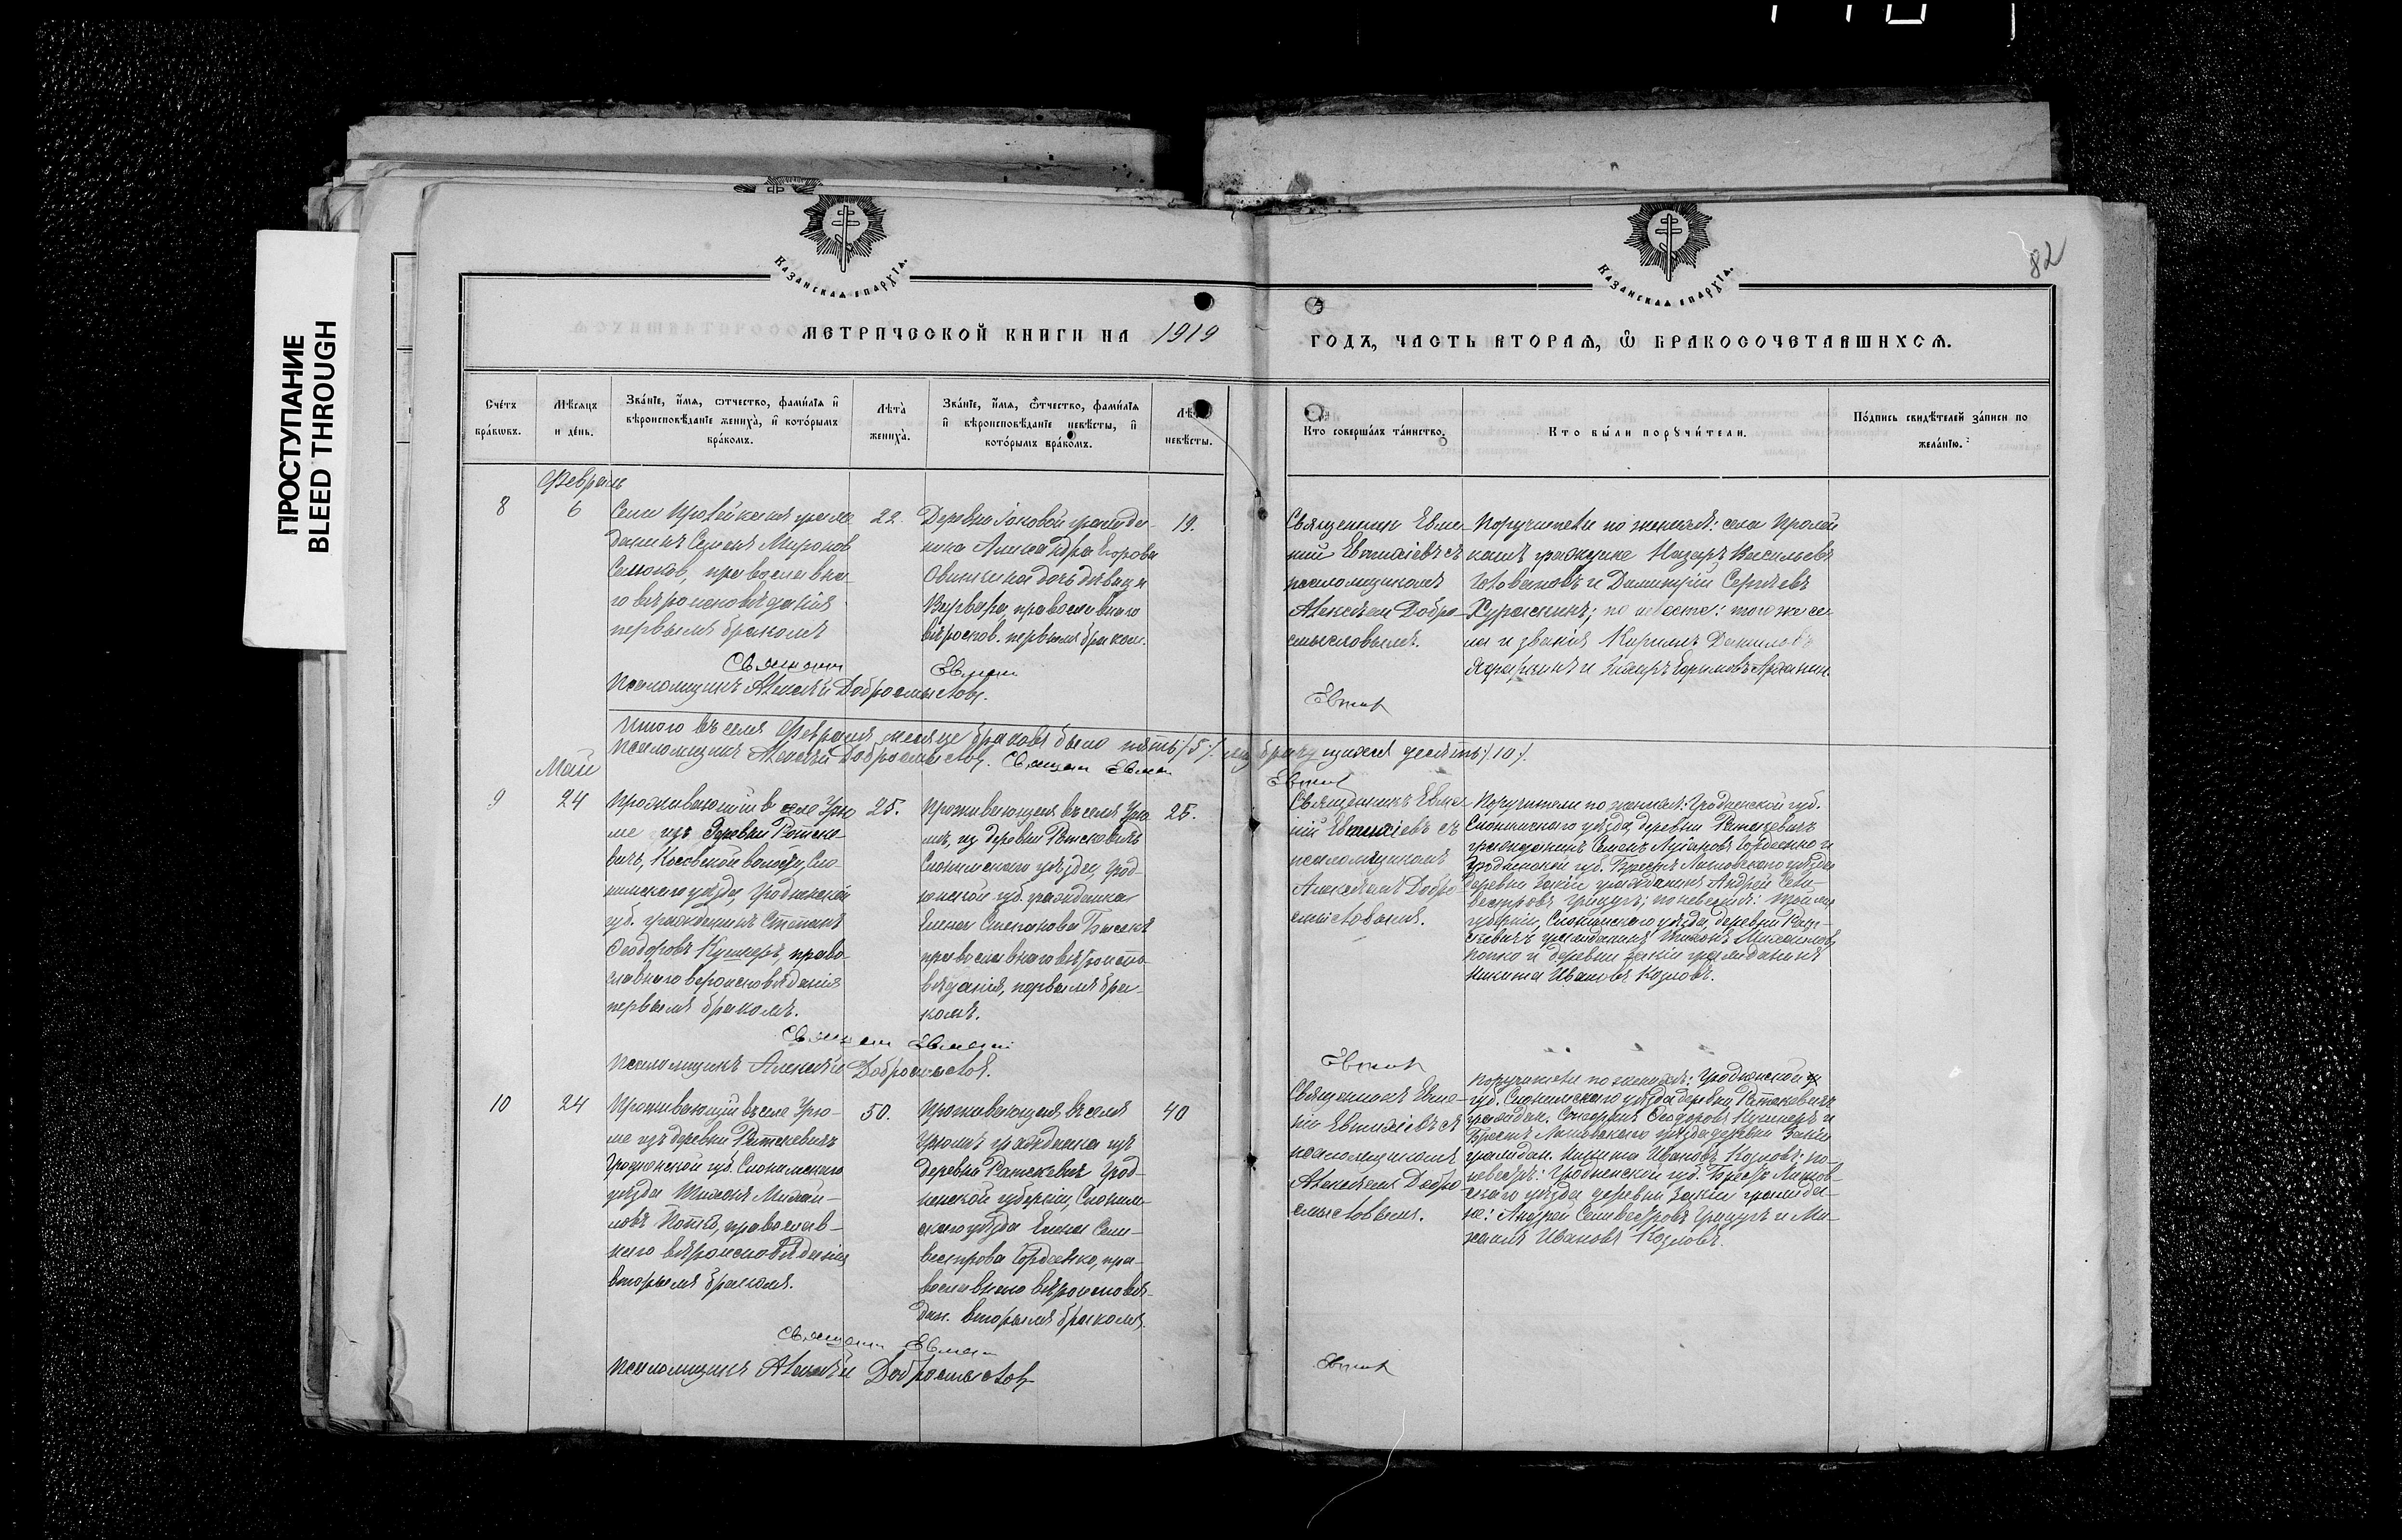 ПРОСТУПАНИЕ
BLEED THROUGH
82
Казанская епархїѧ.
Казанская епархїѧ.
МЕТРИЧЕСКОЙ КНИГИ НА 1919
ГОДЪ, ЧАСТЬ ВТОРАѦ, Ѿ БРАКОСОЧЕТАВШИХСѦ.
Счётъ бра́кωвъ.
Мѣ́сѧцъ и де́нь.
Зва́нїе, и҆́мѧ, ѻтчество, фами́лїѧ и҆ вѣроисповѣ́данїе жениха̀, и҆ кото́рымъ бра́комъ.
Лѣта̀ жениха̀.
Зва́нїе, и҆́мѧ, ѻ҆́тчество, фами́лїѧ и҆ вѣроисповѣ́данїе невѣ́сты, и҆ кото́рымъ бра́комъ.
невѣ́сты.
Кто̀ соверша́лъ та́инство.
Кто̀ бы́ли порꙋчи́тели.
По́дпись свидѣ́телей за́писи по жела́нїю.
Февраль
8
6
Села гра-
данинъ Семенъ Миронов
православна-
го вѣроисповѣданія
первымъ бракомъ
22.
Деревни гражда-
нина Александра Егорова
дочь дѣвица
Варвара, православнаго
вѣроисп. первымъ браком.
19.
Священникъ Евме-
ній Евтихіевъ съ
псаломщикомъ
Алексѣем Добро-
смысловымъ.
Поручители по женихѣ: села
граждане Назаръ Васильевъ
и Димитрій Сергѣевъ
по невѣстѣ: того же се-
ла и званія Кириллъ Даниловъ
Псаломщикъ Алексѣй Добросмыслов.
Итого въ семъ Февралѣ мѣсяце браковъ было пять /5/ бракующихся десять /10/.
Псаломщикъ Алексѣй Добросмыслов. Священ Евмен
Май
9
24
Проживающій в селе Урю-
ме изъ деревни Ратске-
вичъ, Косовской волости, Сло-
нимскаго уѣзда, Гродненской
губ. гражданинъ Степанъ
Ѳеодоровъ Кушнеръ, право-
славнаго вероисповѣданія
первымъ бракомъ.
25.
Проживающая въ селѣ Урю-
мѣ, из деревни Ратскевичъ
Слонимскаго уѣзда, Грод-
ненской губ. гражданка
Елена Степанова
православнаго вѣроиспо-
вѣданія, первымъ бра-
комъ.
25.
Священникъ Евме-
ній Евтихіевъ съ
псаломщикомъ
Алексѣемъ Добро-
смысловымъ.
Поручители по женихѣ: Гродненской губ.
Слонимскаго уѣзда, деревни Ратскевичъ
гражданинъ Семенъ Гордеенко и
Гродненской губ. Брестъ Литовскаго уѣзда
деревни гражданинъ Андрей Сели-
вестровъ Грицукъ; по невестѣ: той же
губерніи, Слонимскаго уѣзда, деревни Рат-
скевичъ гражданинъ Тихонъ Михайлов
и деревни гражданинъ
Никита Ивановъ Козловъ.
Псаломщикъ Алексѣй Добросмыслов.
10
24
Проживающій въ селе Урю-
ме изъ деревни Ратскевичъ
Гродненской губ. Слонимскаго
уѣзда Тихонъ Михай-
ловъ православ-
наго вѣроисповѣданія
вторымъ бракомъ.
50.
Проживающая въ селѣ
Урюмѣ гражданка изъ
деревни Ратскевичъ Грод-
ненской губерніи, Слоним-
скаго уѣзда Елена Сели-
вестрова Гордеенко, пра-
вославнаго вѣроисповѣ-
дан. вторымъ бракомъ.
40
Священникъ Евме-
ній Евтихіевъ съ
псаломщикомъ
Алексѣемъ Добро-
смысловымъ.
Поручители по женихѣ: Гродненской
губ. Слонимскаго уѣзда деревни Ратскевичъ
граждан. Ѳеодоровъ Кушнеръ и
Брестъ Литовскаго уѣзда деревни
граждан. Никита Ивановъ Козловъ; по
невестѣ: Гродненской губ. Брестъ Литов-
скаго уѣзда деревни гражда-
не: Андрей Селивестровъ Грицукъ и Ми-
хаилъ Ивановъ Козловъ.
Псаломщикъ Алексѣй Добросмыслов